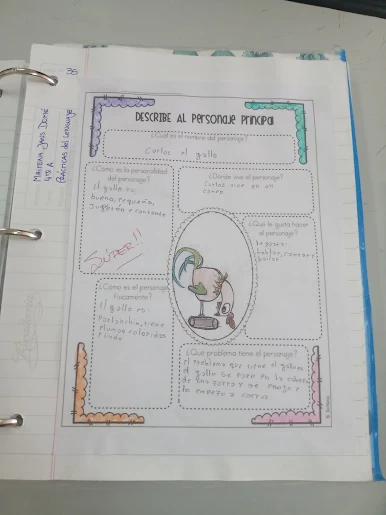 Prácticas del Lenguaje
4to A
DESCRIBE AL Personaje Principal
¿Cuál es el nombre del personaje?
Carlos el gallo
¿Cómo es la personalidad
del personaje?
El gallo es:
bueno, pequeño,
juguetón y cantando
SÚPER!!
¿Dónde vive el personaje?
Carlos vive en un
campo
¿Qué le gusta hacer
al personaje?
le gusta:
hablar, cantar y
bailar
¿Cómo es el personaje
físicamente?
El gallo es:
tiene
plumas coloridas
y lindo
¿Qué problema tiene el personaje?
El problema que tiene el gallo
el gallo se paró en la cabeza
de una zorra y se enojó y
lo empezó a correr